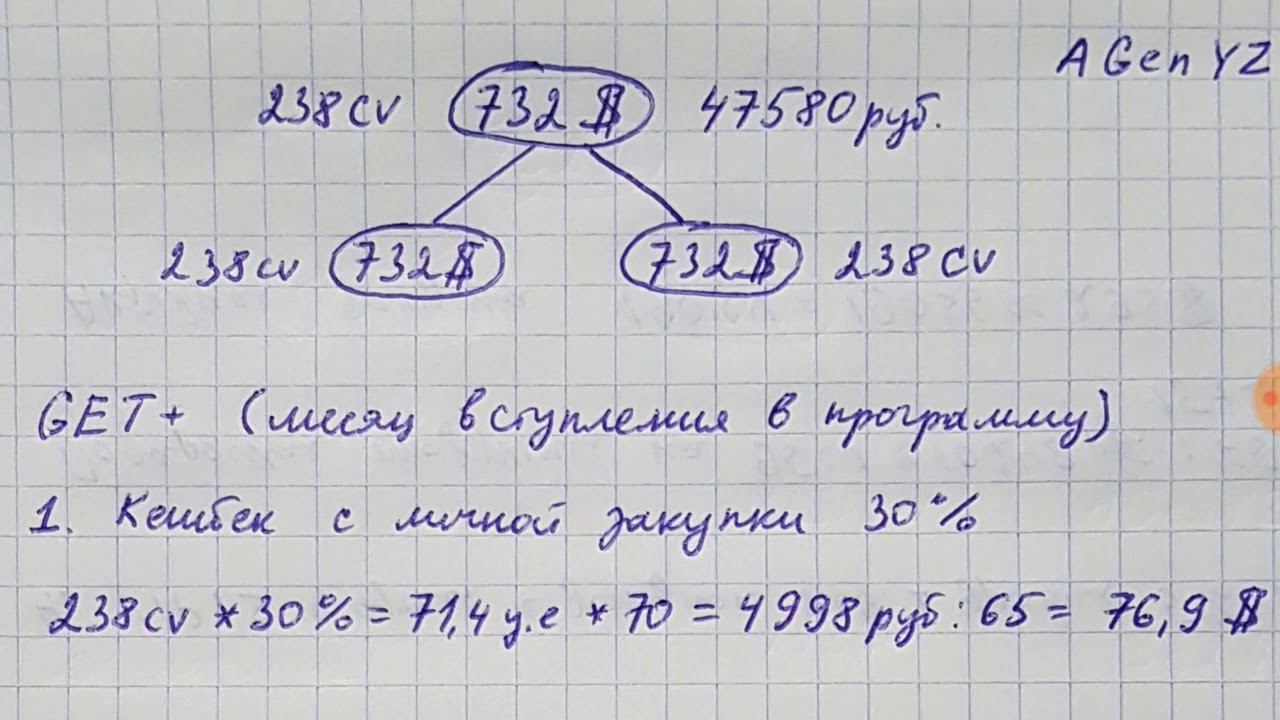 A Gen YZ
238cv 732$ 47580 руб.
238cv 732$ 732$ 238cv
GET+ (месяц вступления в программу)
1. Кешбек с личной закупки 30%
238cv * 30% = 71,4 у.е * 70 = 4998 руб : 65 = 76,9 $